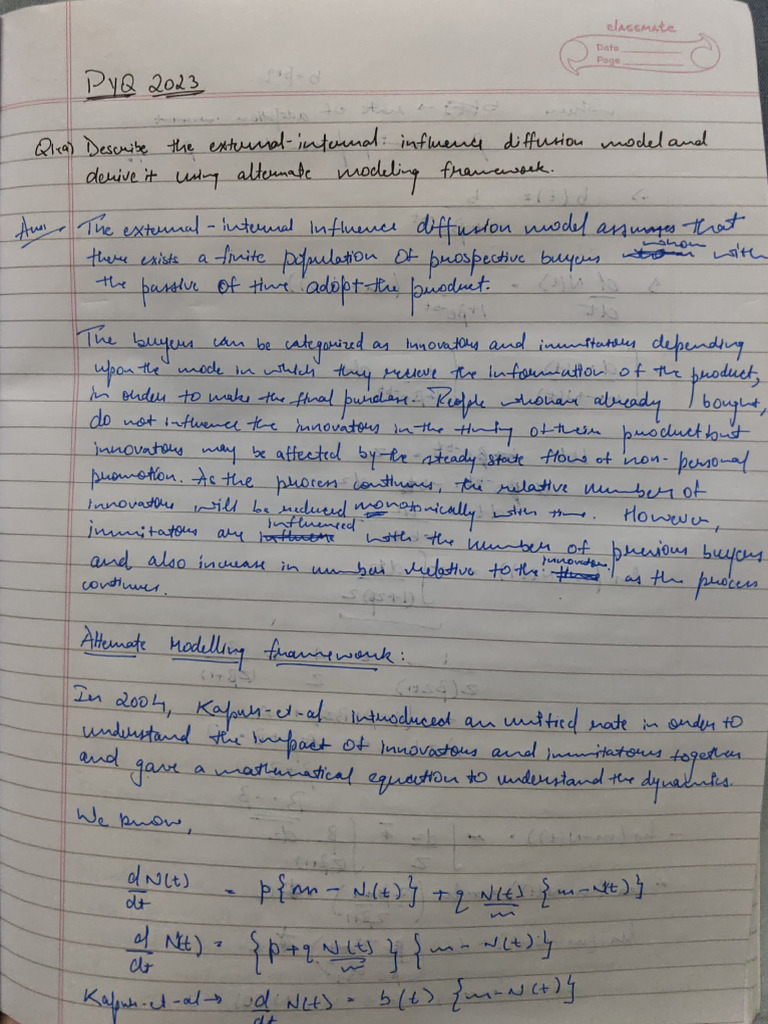 classmate
Date
Page
PYQ 2023
Q1.(a) Describe the external-internal influence diffusion model and
derive it using alternate modeling framework.
Ans. The external-internal influence diffusion model assumes that
there exists a finite population of prospective buyers whom with
the passive of time adopt the product.
The buyers can be categorized as innovators and immitators depending
upon the mode in which they recieve the information of the product,
in order to make the final purchase. People who have already bought,
do not influence the innovators in the timing of their product but
innovators may be affected by the steady state flows of non-personal
promotion. As the process continues, the relative numbers of
innovators will be reduced monotonically with time. However,
immitators are influenced with the numbers of previous buyers
and also increase in number relative to the innovators as the process
continues.
Alternate Modelling framework:
In 2004, Kapur-et-al introduced an unified rate in order to
understand the impact of innovators and immitators together
and gave a mathematical equation to understand the dynamics.
We know,
d/dt N(t) = p{m - N(t)} + q N(t)/m {m - N(t)}
d/dt N(t) = {p + q N(t)/m} {m - N(t)}
Kapur-et-al → d/dt N(t) = b(t) {m - N(t)}